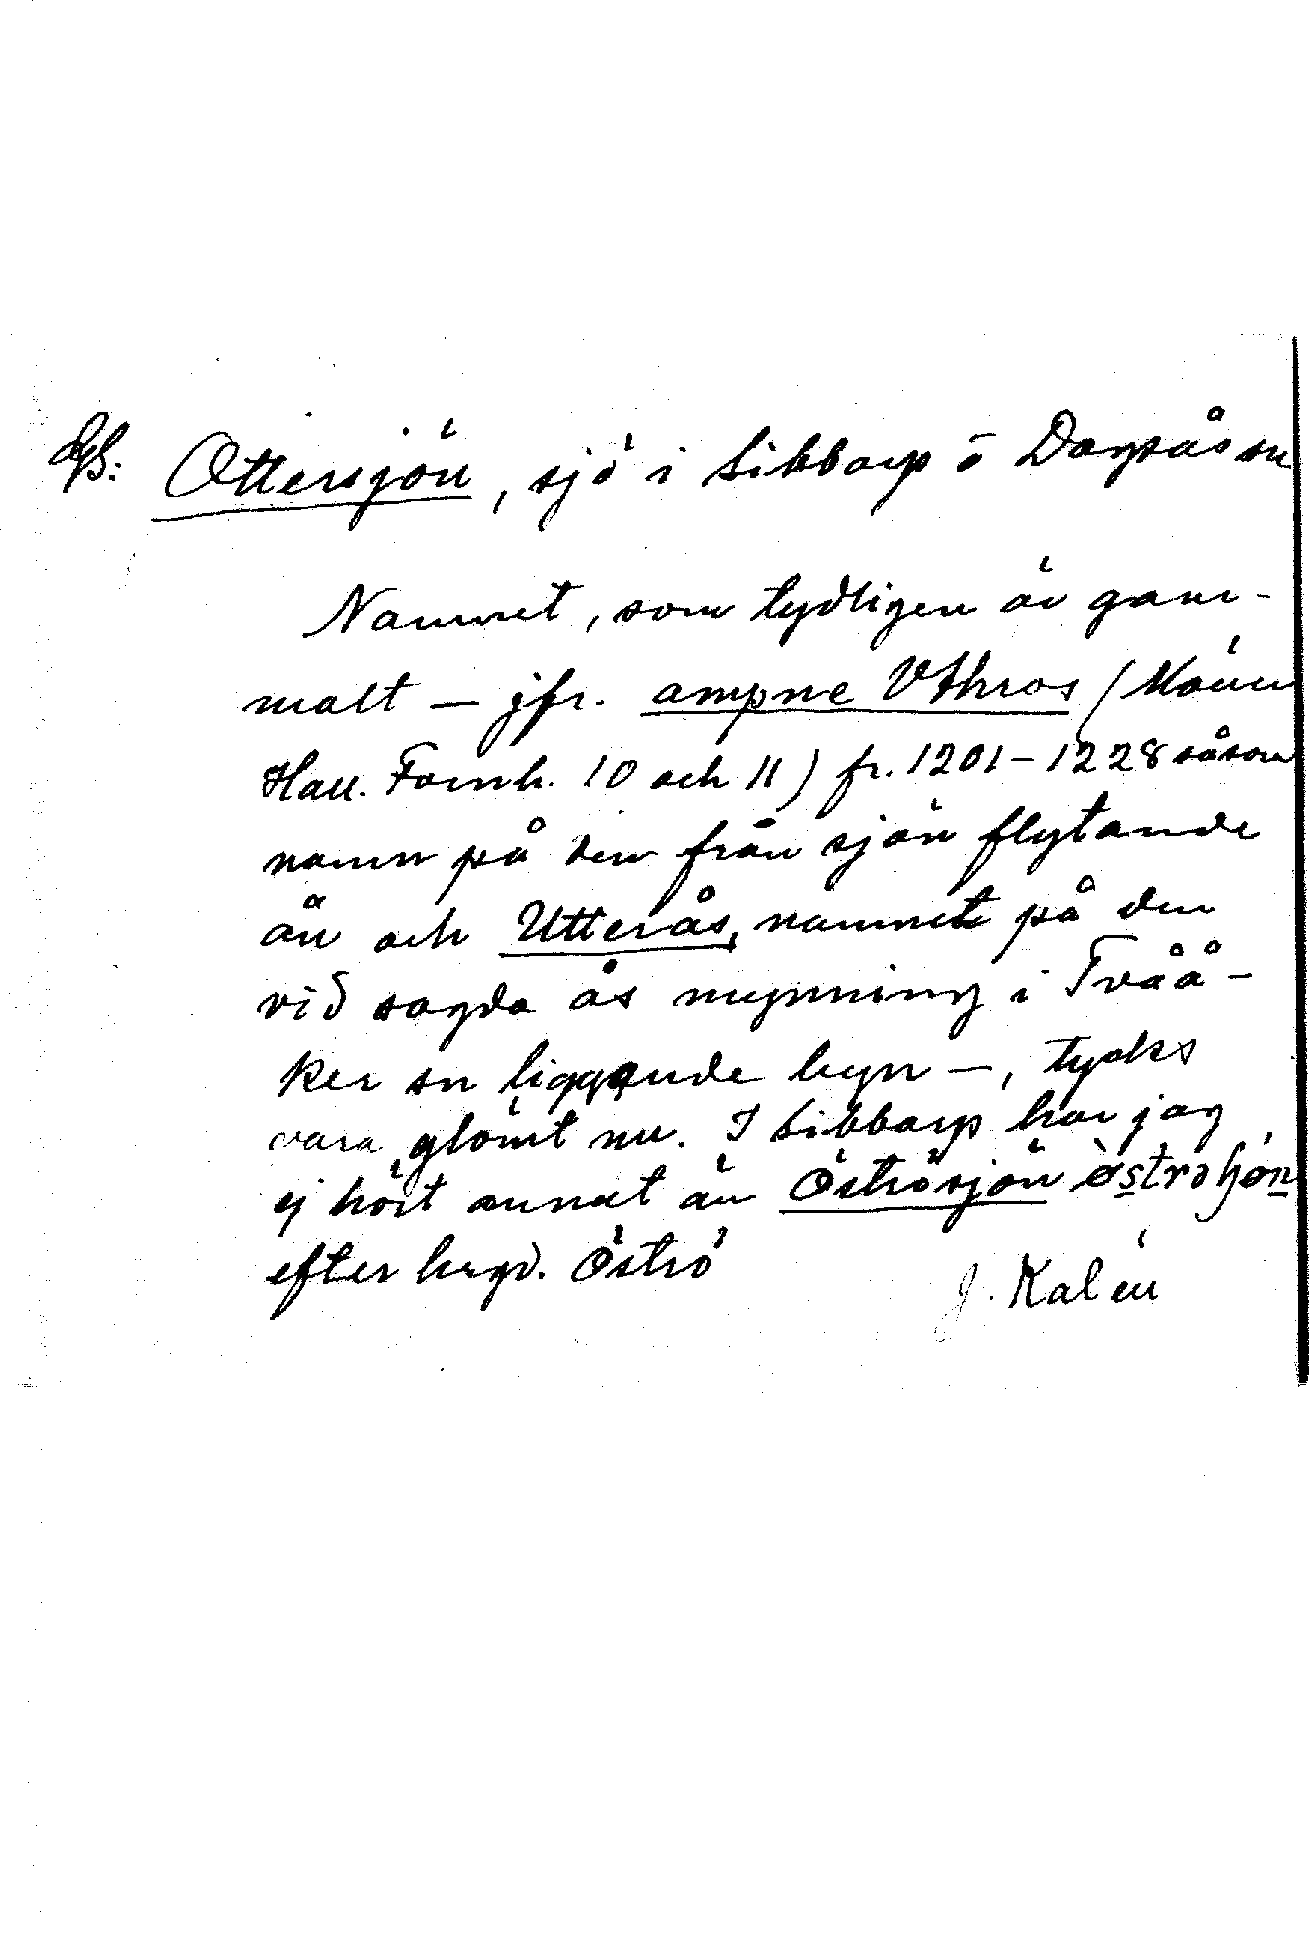 Ottersjön, sjö i Sibbarp o Dagsås sn
Namnet, som tydligen är gam-
malt — jfr. ampne Vthros (
Hall. Fornh. 10 och 11) fr. 1201-1228 såsom
namn på den från sjön flytande
ån och Utterås, namnet på den
vid sagda ås mynning i Tvåå-
ker sn liggande byn —, tycks
vara glömt nu. I Sibbarp har jag
ej hört annat än Öströsjön
efter hrgd. Öströ
J. Kalén